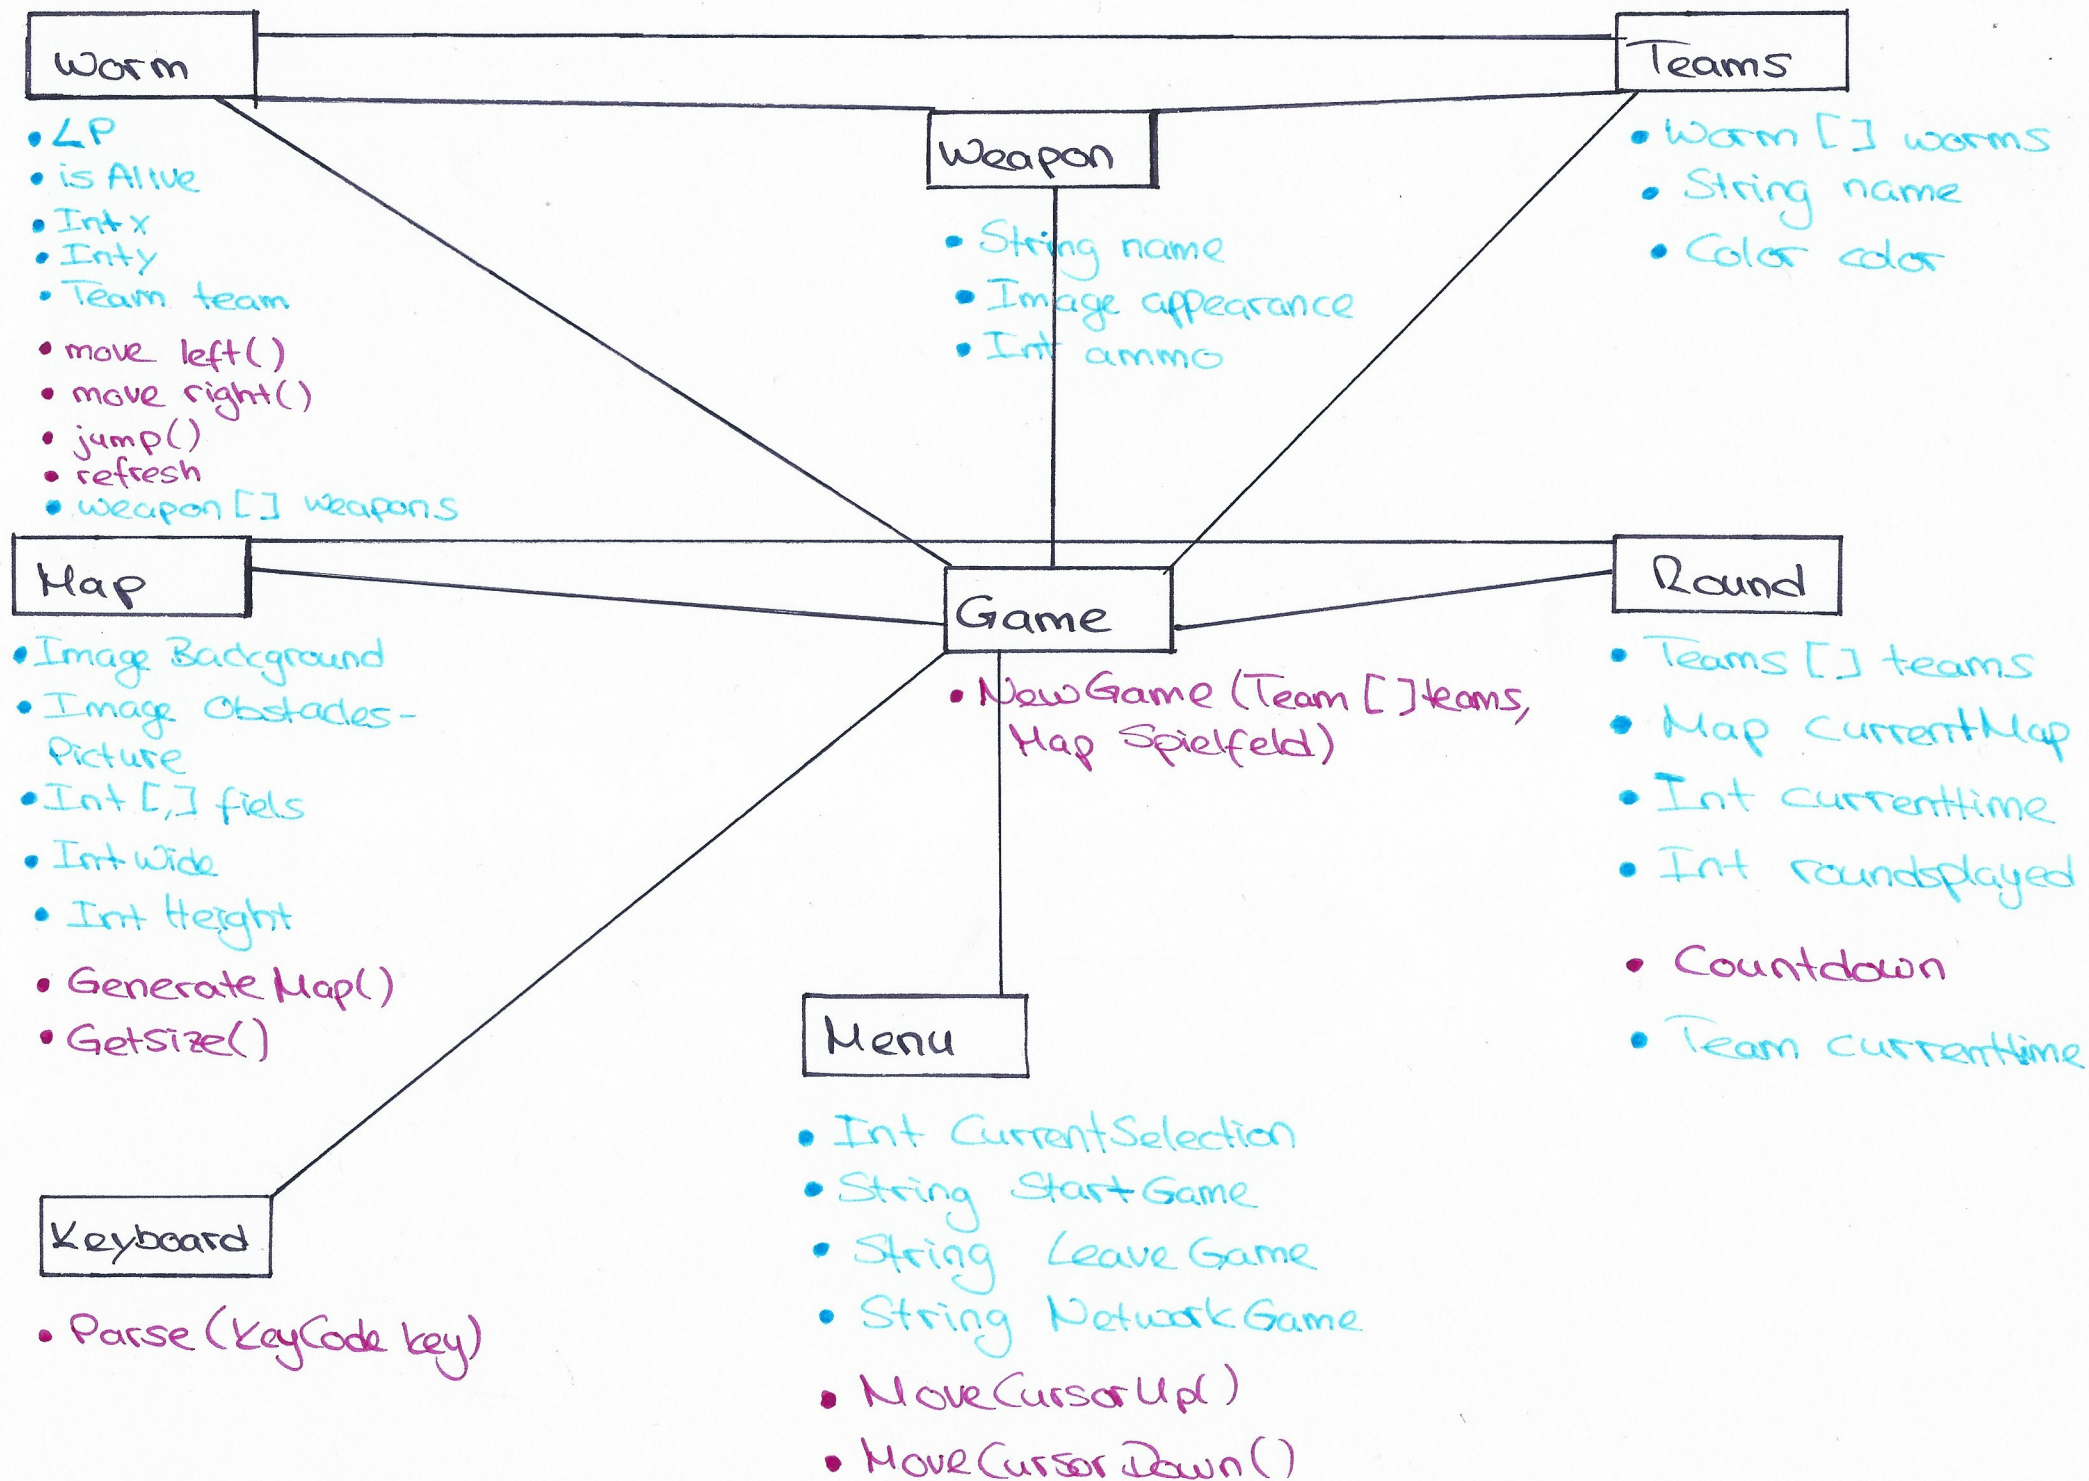 Worm
• LP
• is Alive
• Int x
• Int y
• Team team
• move left()
• move right()
• jump()
• refresh
• weapon[] weapons
Weapon
• String name
• Image appearance
• Int ammo
Teams
• Worm [] worms
• String name
• Color color
Map
• Image Background
• Image Obstacles-
Picture
• Int [,] fiels
• Int Wide
• Int Height
• Generate Map()
• GetSize()
Game
• New Game (Team [] teams,
Map Spielfeld)
Round
• Teams [] teams
• Map CurrentMap
• Int currenttime
• Int roundsplayed
• Countdown
• Team currenttime
Keyboard
• Parse (KeyCode key)
Menu
• Int CurrentSelection
• String Start Game
• String Leave Game
• String Network Game
• Move Cursor Up()
• Move Cursor Down()